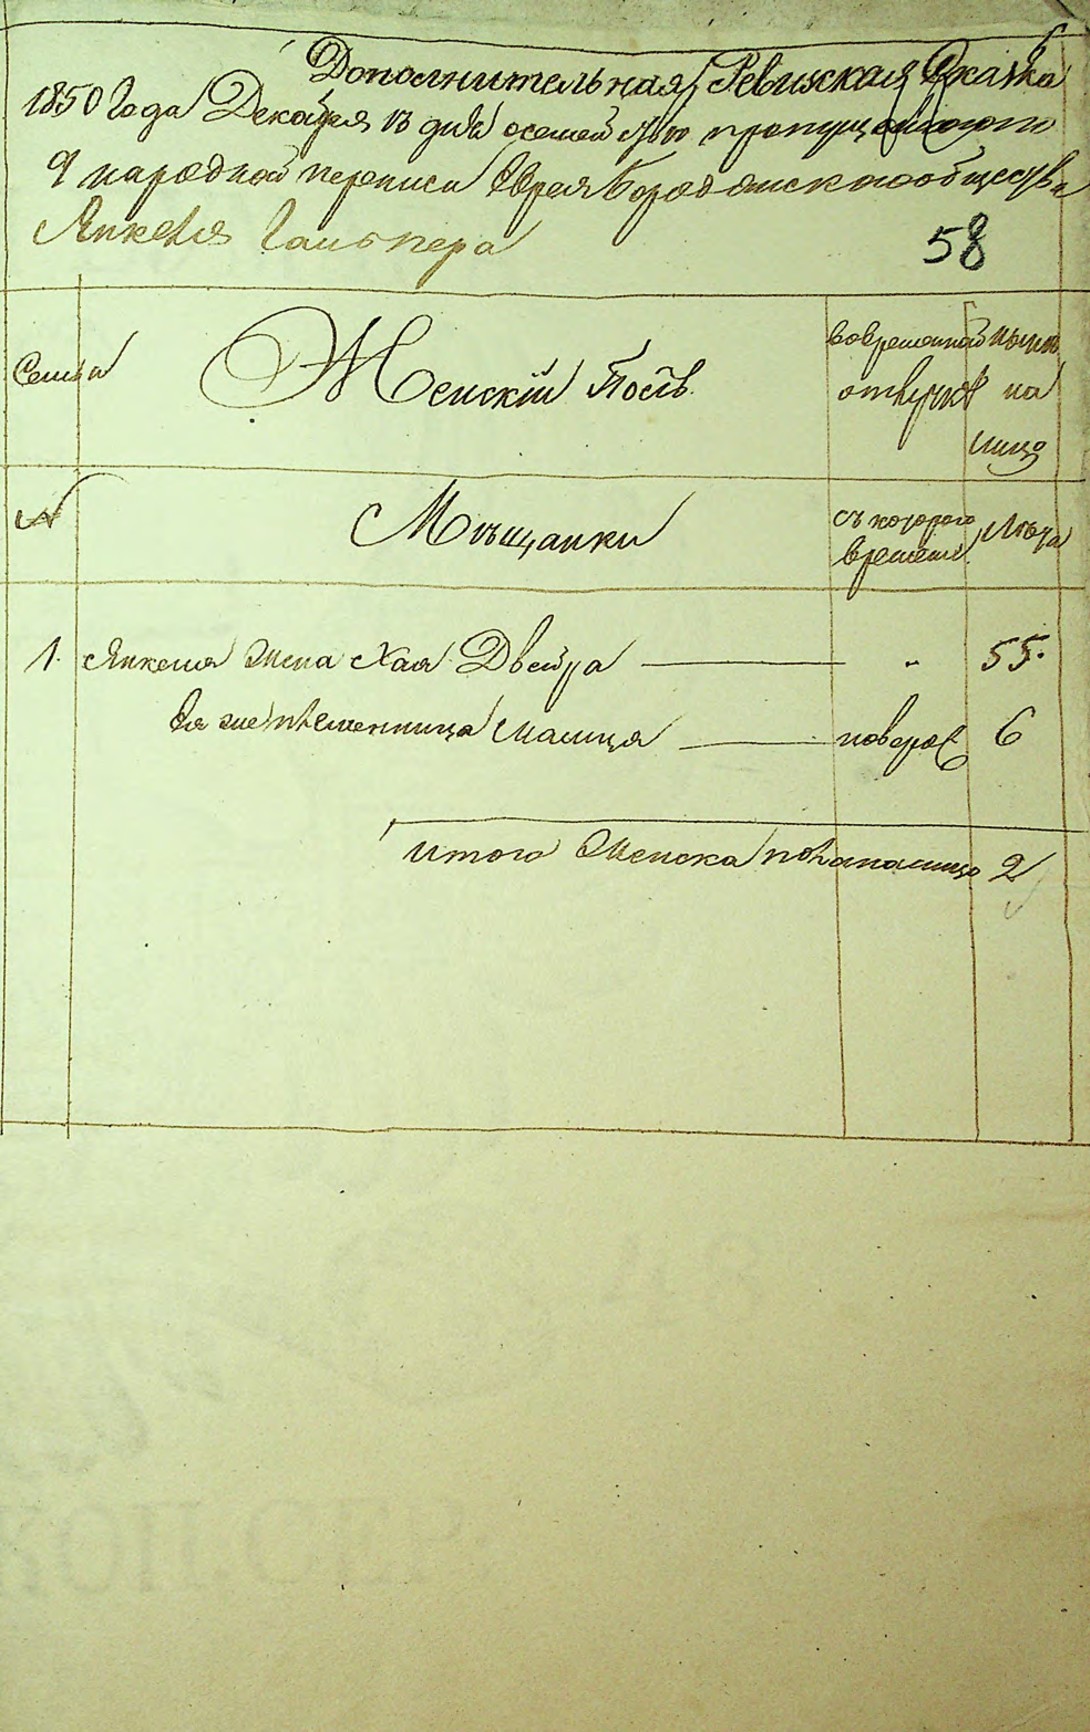 Дополнительная Ревижская Скаска
1850 Года Декабря 13 дня о семействѣ пропущенного
9 народной переписи Еврея Бородянского общества
Янкеля Гальпера
58
Семьи
Женскій Полъ
во временной отлучкѣ
нынѣ на лицо
№
Мѣщанки
съ которого времени
Лѣта
1. Янкеля жена Хая Двейра — " 55.
Ея же племенница Малица — 6
итого женска пола на лицо 2